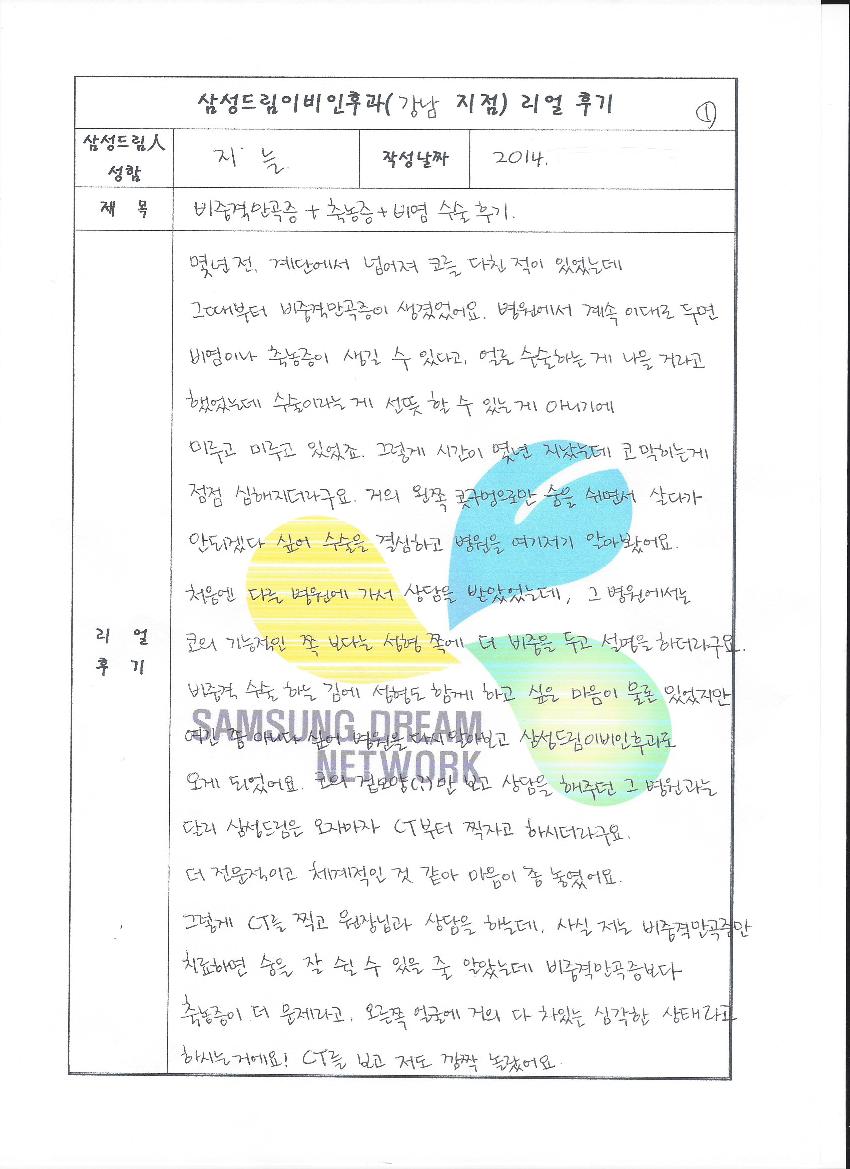 삼성드림이비인후과(강남 지점) 리얼 후기 ①
삼성드림人 성함
지 늘
작성날짜
2014.
제 목
비중격만곡증 + 축농증 + 비염 수술 후기.
리 얼 후 기
몇년 전, 계단에서 넘어져 코를 다친 적이 있었는데
그때부터 비중격만곡증이 생겼었어요. 병원에서 계속 이대로 두면
비염이나 축농증이 생길 수 있다고, 얼른 수술하는 게 나을 거라고
했었는데 수술이라는 게 선뜻 할 수 있는게 아니기에
미루고 미루고 있었죠. 그렇게 시간이 몇년 지났는데 코 막히는게
점점 심해지더라구요. 거의 왼쪽 콧구멍으로만 숨을 쉬면서 살다가
안되겠다 싶어 수술을 결심하고 병원을 여기저기 알아봤어요.
처음엔 다른 병원에 가서 상담을 받았었는데, 그 병원에서는
코의 기능적인 쪽 보다는 성형 쪽에 더 비중을 두고 설명을 하더라구요.
비중격 수술 하는 김에 성형도 함께 하고 싶은 마음이 물론 있었지만
여긴 좀 아니다 싶어 병원을 다시 알아보고 삼성드림이비인후과로
오게 되었어요. 코의 겉모양(?)만 보고 상담을 해주던 그 병원과는
달리 삼성드림은 오자마자 CT부터 찍자고 하시더라구요.
더 전문적이고 체계적인 것 같아 마음이 좀 놓였어요.
그렇게 CT를 찍고 원장님과 상담을 하는데, 사실 저는 비중격만곡증만
치료하면 숨을 잘 쉴 수 있을 줄 알았는데 비중격만곡증보다
축농증이 더 문제라고, 오른쪽 얼굴에 거의 다 차있는 심각한 상태라고
하시는거에요! CT를 보고 저도 깜짝 놀랐어요.
SAMSUNG DREAM
NETWORK